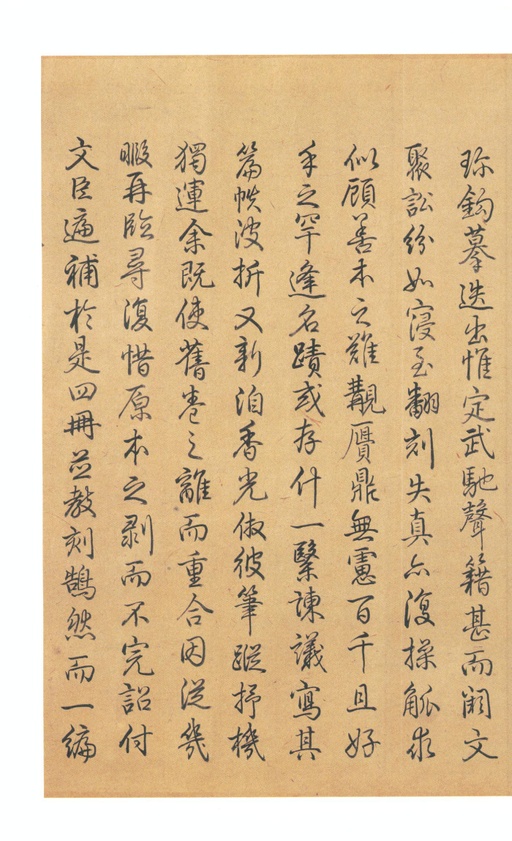 珎鉤摹迭出惟定武馳聲籍甚而闕文
聚訟紛如寖至翻刻失真亦復操觚求
似顧善本之難覯贋鼎無慮百千且好
手之罕逢名蹟或存什一繄諫議寫其
篇帙波折又新洎香光倣彼筆蹤抒機
獨運余既使舊卷之離而重合因從幾
暇再臨尋復惜原本之剥而不完詔付
文臣遍補於是四冊並教刻鵠然而一編